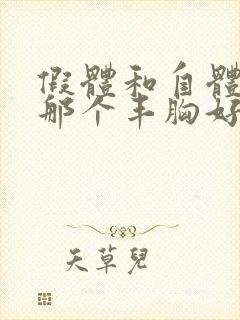 假體和自體
那个丰胸好
天草兒